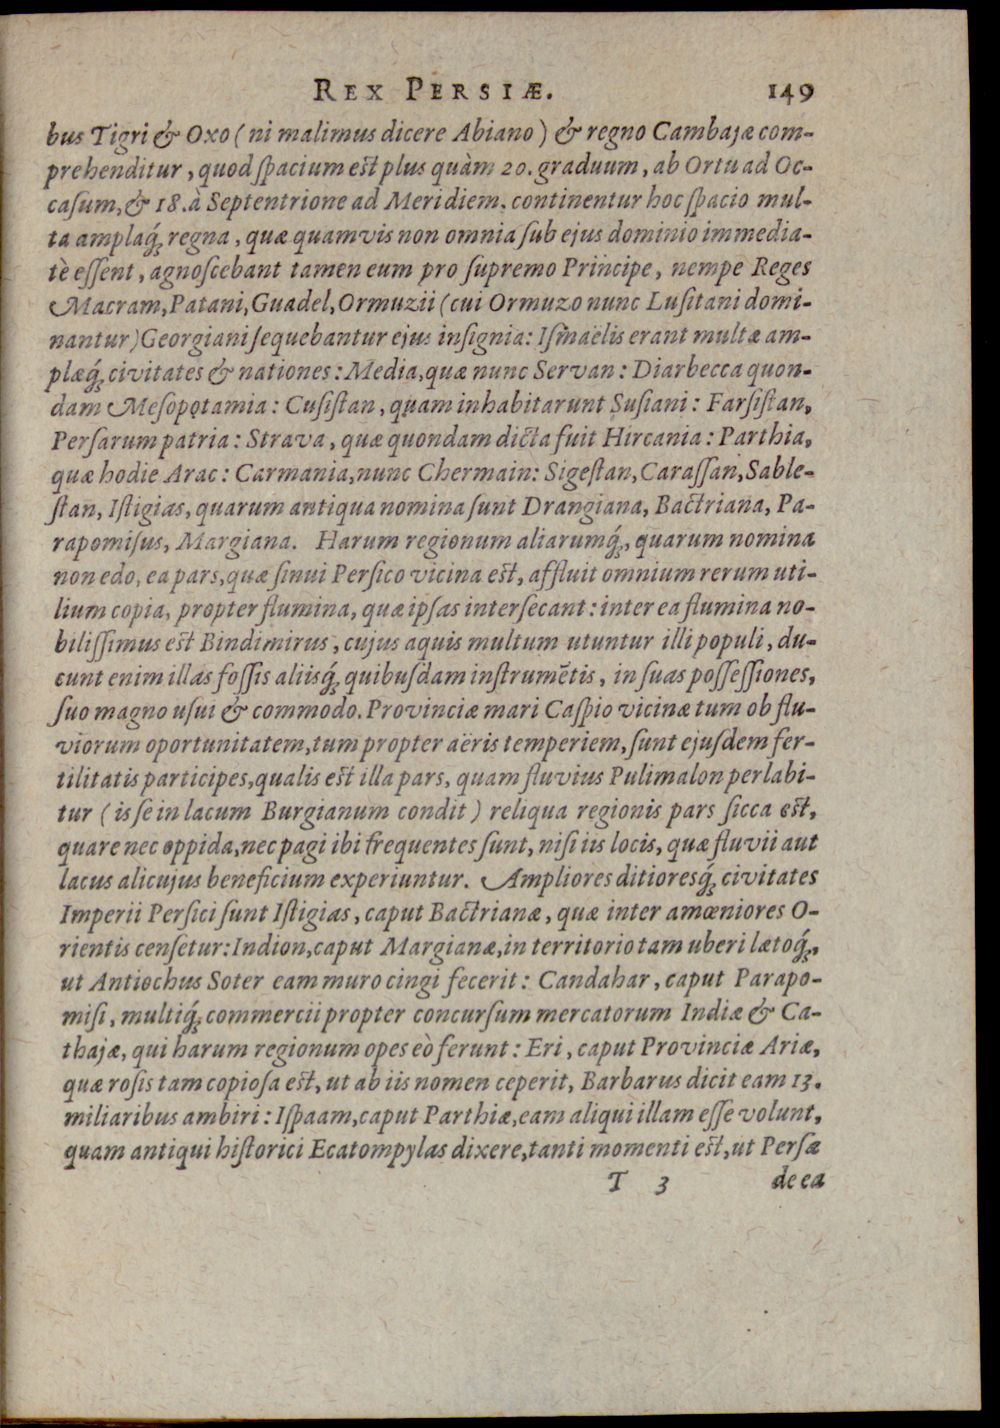 REX PERSIÆ. 149
bus Tigri & Oxo (ni malimus dicere Abiano) & regno Cambajæ com-
prehenditur, quod ſpacium eſt plus quàm 20. graduum, ab Ortu ad Oc-
caſum, & 18. à Septentrione ad Meridiem. continentur hoc ſpacio mul-
ta amplaq́ꝫ regna, quæ quamvis non omnia ſub ejus dominio immedia-
tè eſſent, agnoſcebant tamen eum pro ſupremo Principe, nempe Reges
Macram, Patani, Guadel, Ormuzii (cui Ormuzo nunc Luſitani domi-
nantur) Georgiani ſequebantur ejus inſignia: Iſmaëlis erant multæ am-
plæq́ꝫ civitates & nationes: Media, quæ nunc Servan: Diarbecca quon-
dam Meſopotamia: Cuſiſtan, quam inhabitarunt Suſiani: Farſiſtan,
Perſarum patria: Strava, quæ quondam dicta fuit Hircania: Parthia,
quæ hodie Arac: Carmania, nunc Chermain: Sigeſtan, Caraſſan, Sable-
ſtan, Iſtigias, quarum antiqua nomina ſunt Drangiana, Bactriana, Pa-
rapomiſus, Margiana. Harum regionum aliarumq́ꝫ, quarum nomina
non edo, ea pars, quæ ſinui Perſico vicina eſt, affluit omnium rerum uti-
lium copia, propter flumina, quæ ipſas interſecant: inter ea flumina no-
biliſſimus eſt Bindimirus, cujus aquis multum utuntur illi populi, du-
cunt enim illas foſſis aliisq́ꝫ quibuſdam inſtrumētis, in ſuas poſſeſſiones,
ſuo magno uſui & commodo. Provinciæ mari Caſpio vicinæ tum ob flu-
viorum oportunitatem, tum propter aëris temperiem, ſunt ejuſdem fer-
tilitatis participes, qualis eſt illa pars, quam fluvius Pulimalon perlabi-
tur (is ſe in lacum Burgianum condit) reliqua regionis pars ſicca eſt,
quare nec oppida, nec pagi ibi frequentes ſunt, niſi iis locis, quæ fluvii aut
lacus alicujus beneficium experiuntur. Ampliores ditioresq́ꝫ civitates
Imperii Perſici ſunt Iſtigias, caput Bactrianæ, quæ inter amœniores O-
rientis cenſetur: Indion, caput Margianæ, in territorio tam uberi lætoq́ꝫ,
ut Antiochus Soter eam muro cingi fecerit: Candahar, caput Parapo-
miſi, multiq́ꝫ commercii propter concurſum mercatorum Indiæ & Ca-
thajæ, qui harum regionum opes eò ferunt: Eri, caput Provinciæ Ariæ,
quæ roſis tam copioſa eſt, ut ab iis nomen ceperit, Barbarus dicit eam 13.
miliaribus ambiri: Iſpaam, caput Parthiæ, eam aliqui illam eſſe volunt,
quam antiqui hiſtorici Ecatompylas dixere, tanti momenti eſt, ut Perſæ
T 3 de ea